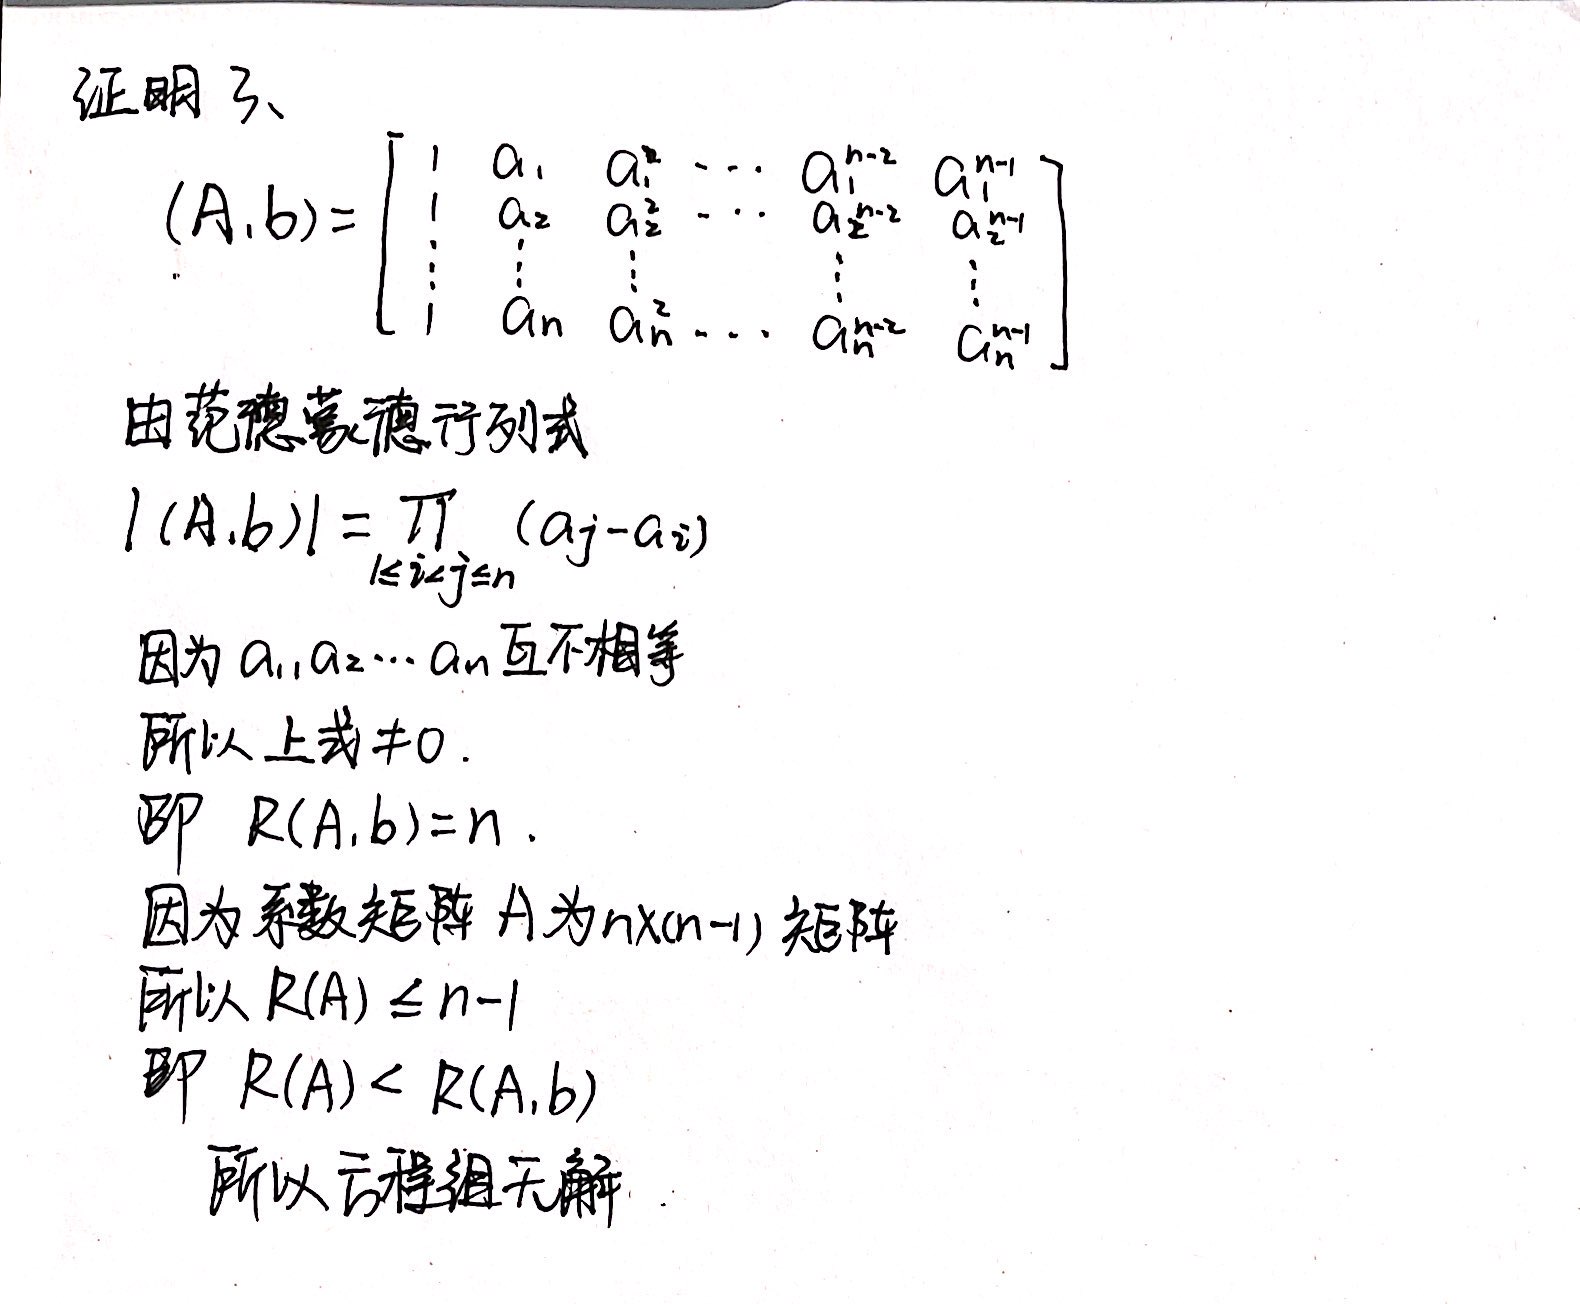 证明 3、
(A,b)= [ 1 a₁ a₁² ··· a₁ⁿ⁻² a₁ⁿ⁻¹
1 a₂ a₂² ··· a₂ⁿ⁻² a₂ⁿ⁻¹
⋮ ⋮ ⋮ ⋮ ⋮
1 aₙ aₙ² ··· aₙⁿ⁻² aₙⁿ⁻¹ ]
由范德蒙德行列式
|(A,b)| = ∏ (aj-ai)
1≤i<j≤n
因为 a₁,a₂···aₙ互不相等
所以上式≠0.
即 R(A,b)=n.
因为系数矩阵 A为n×(n-1) 矩阵
所以 R(A) ≤ n-1
即 R(A) < R(A,b)
所以方程组无解